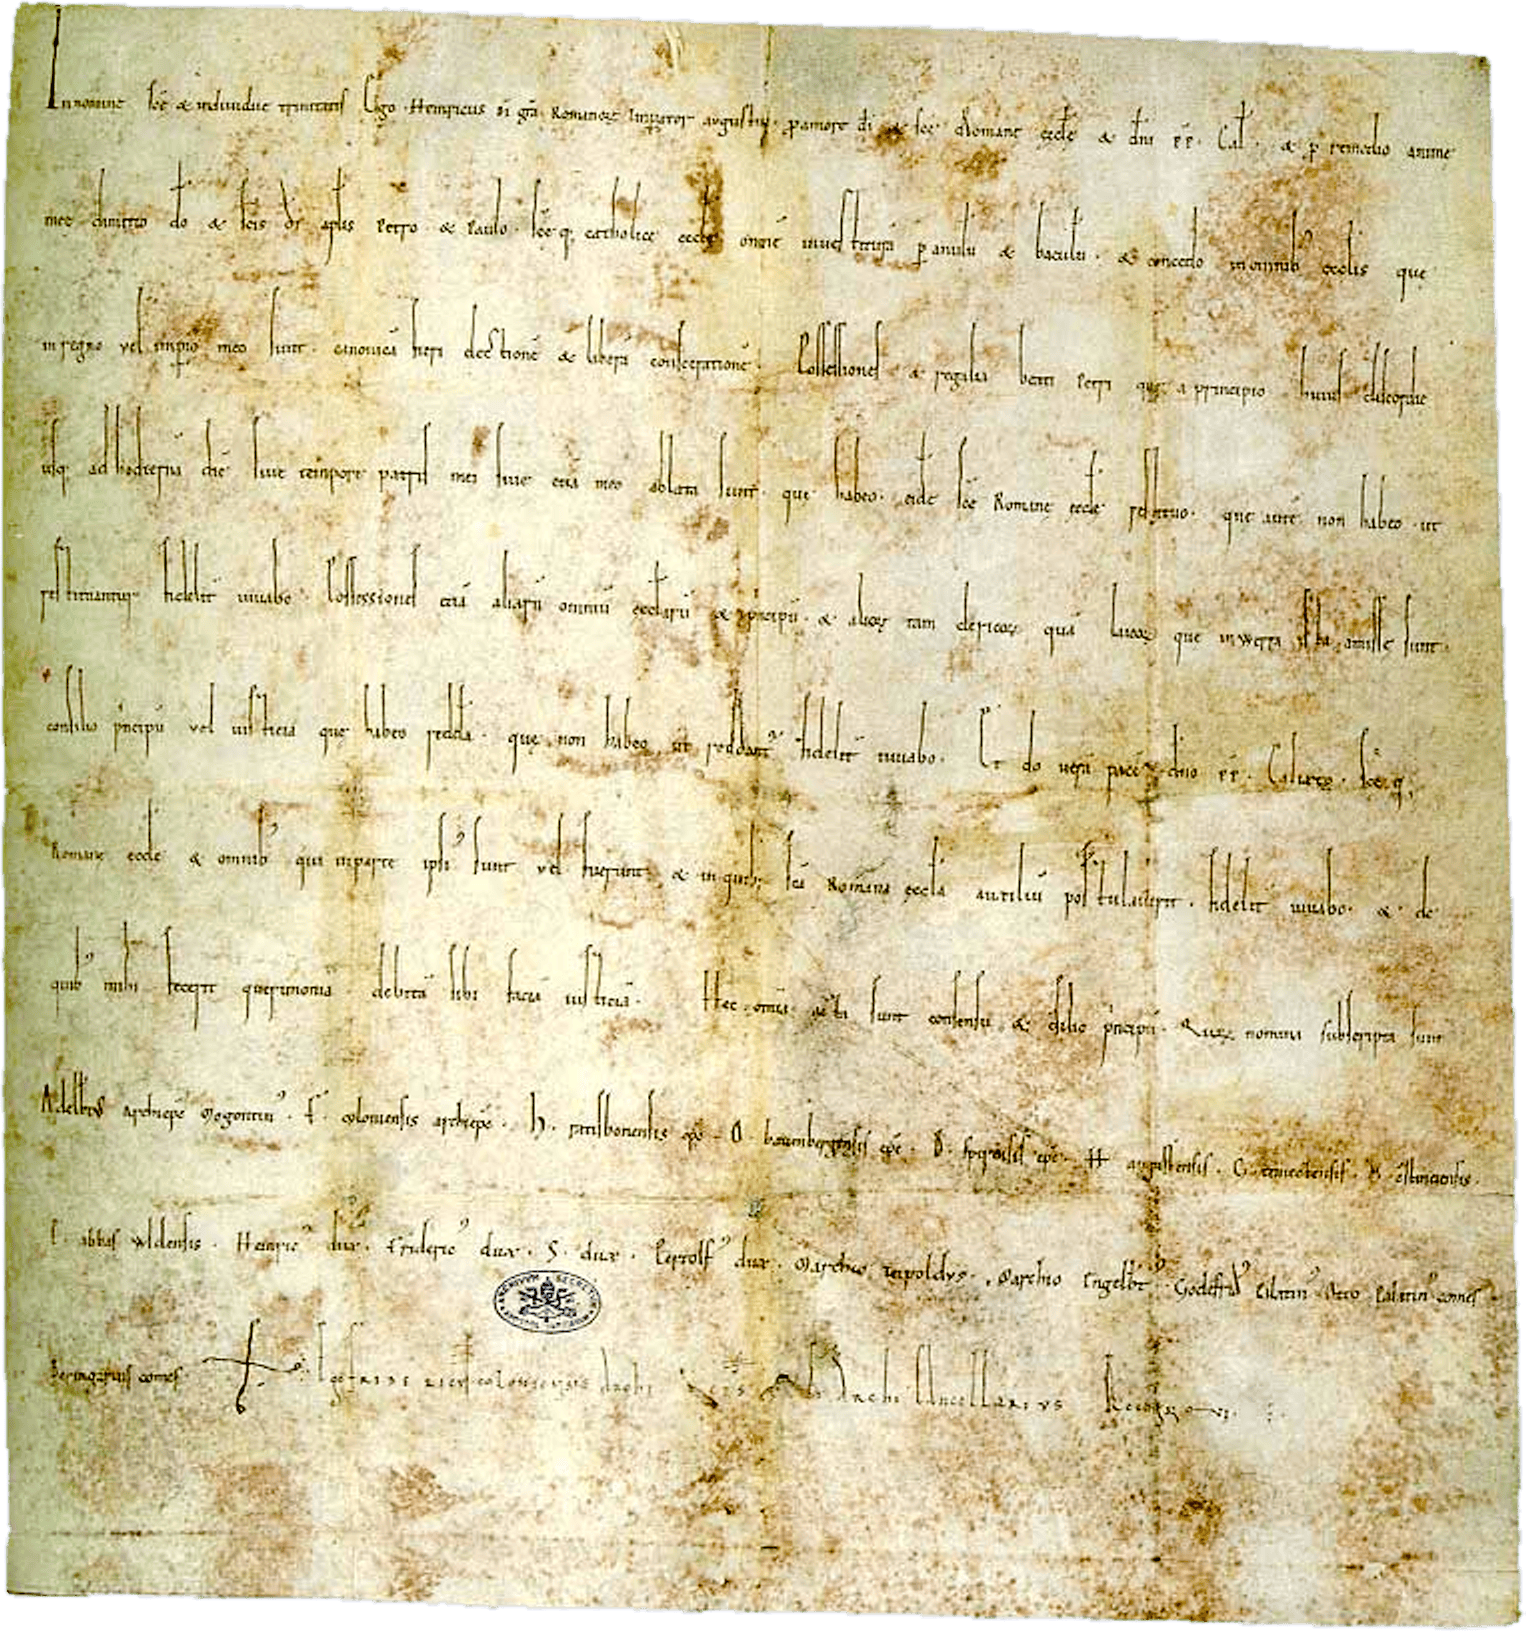 In nomine scę & individuę trinitatis Ego Heinricus di grã Romanorꝝ Imperator augustus. ꝓ amore di & scę Romanę ęcclę & dni pp. Cal. & ꝓ remedio animę
meę dimitto do & scis di aplis Petro & Paulo. scęq; catholicę ęcclę omnẽ investiturã ꝑ anulũ & baculũ. & concedo in omnib' ęcclis quę
in regno vel impio meo sunt. canonicã fieri electionẽ & liberã consecrationẽ. Possessiones & regalia beati Petri quę a principio huius discordię
usq; ad hodiernã diẽ sive tempore patris mei sive etiã meo ablata sunt. quę habeo. eidẽ scę Romanę ęcclę restituo. quę autẽ non habeo ut
restituantur fidelit iuvabo. Possessiones etiã aliarũ omniũ ęcclarũ & pncipũ & aliorꝝ tam clericorꝝ quã laicorꝝ quę in werra ista amissę sunt.
consilio pncipũ vel iusticia quę habeo reddã. quę non habeo ut reddant' fidelit iuvabo. Et do verã pacẽ dno pp. Calixto. scęq;
Romanę ęcclę & omnib' qui in parte ipsi' sunt vel fuerunt & in quib' scã Romana ęccla auxiliũ postulaverit. fidelit iuvabo. & de
quib' mihi fecerit querimoniã debitã sibi faciã iusticiã. Hęc omia acta sunt consensu & cõsilio pncipũ. Quorꝝ nomina subscripta sunt
Adelbtus archiepc Mogontin'. F. coloniensis archiepc. H. ratisbonensis epc. O. bauenbergensis epc. B. spirensis epc. H. augustensis. G. traiectensis. O. cõstanciensis.
E. abbas wldensis. Heinric' dux. Frideric' dux. S. dux. Pertolf' dux. Marchio teipoldus. Marchio Engelbt'. Godefrid' Palatin'. Otto Palatin' comes.
Beringarius comes. Ego Fridericus coloniensis Archiepc & Archicancellarius Recognovi.
ARCHIVVM SECRETVM